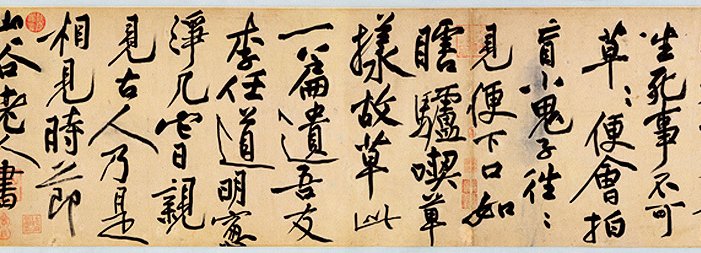 生死事不可
草〻便會拍
盲小鬼子往〻
見便下口如
瞎驢喫草
樣故草此
一篇遺吾友
李任道明窓
淨几它日親
見古人乃是
相見時節
山谷老人書